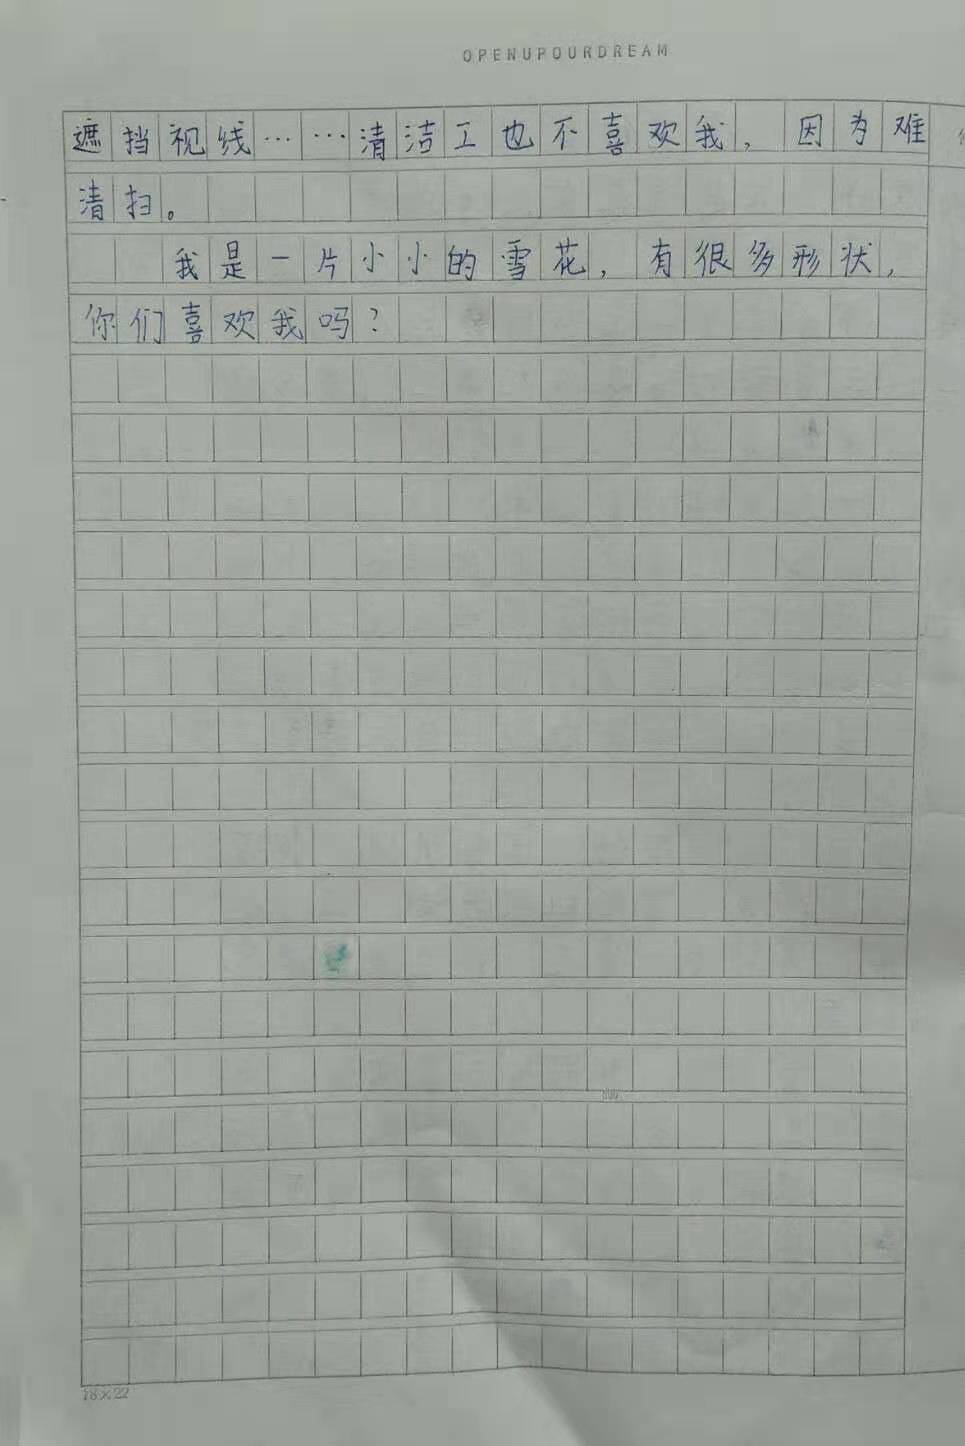 OPENUPOURDREAM
遮挡视线……清洁工也不喜欢我，因为难
清扫。
我是一片小小的雪花，有很多形状，
你们喜欢我吗？
18×22